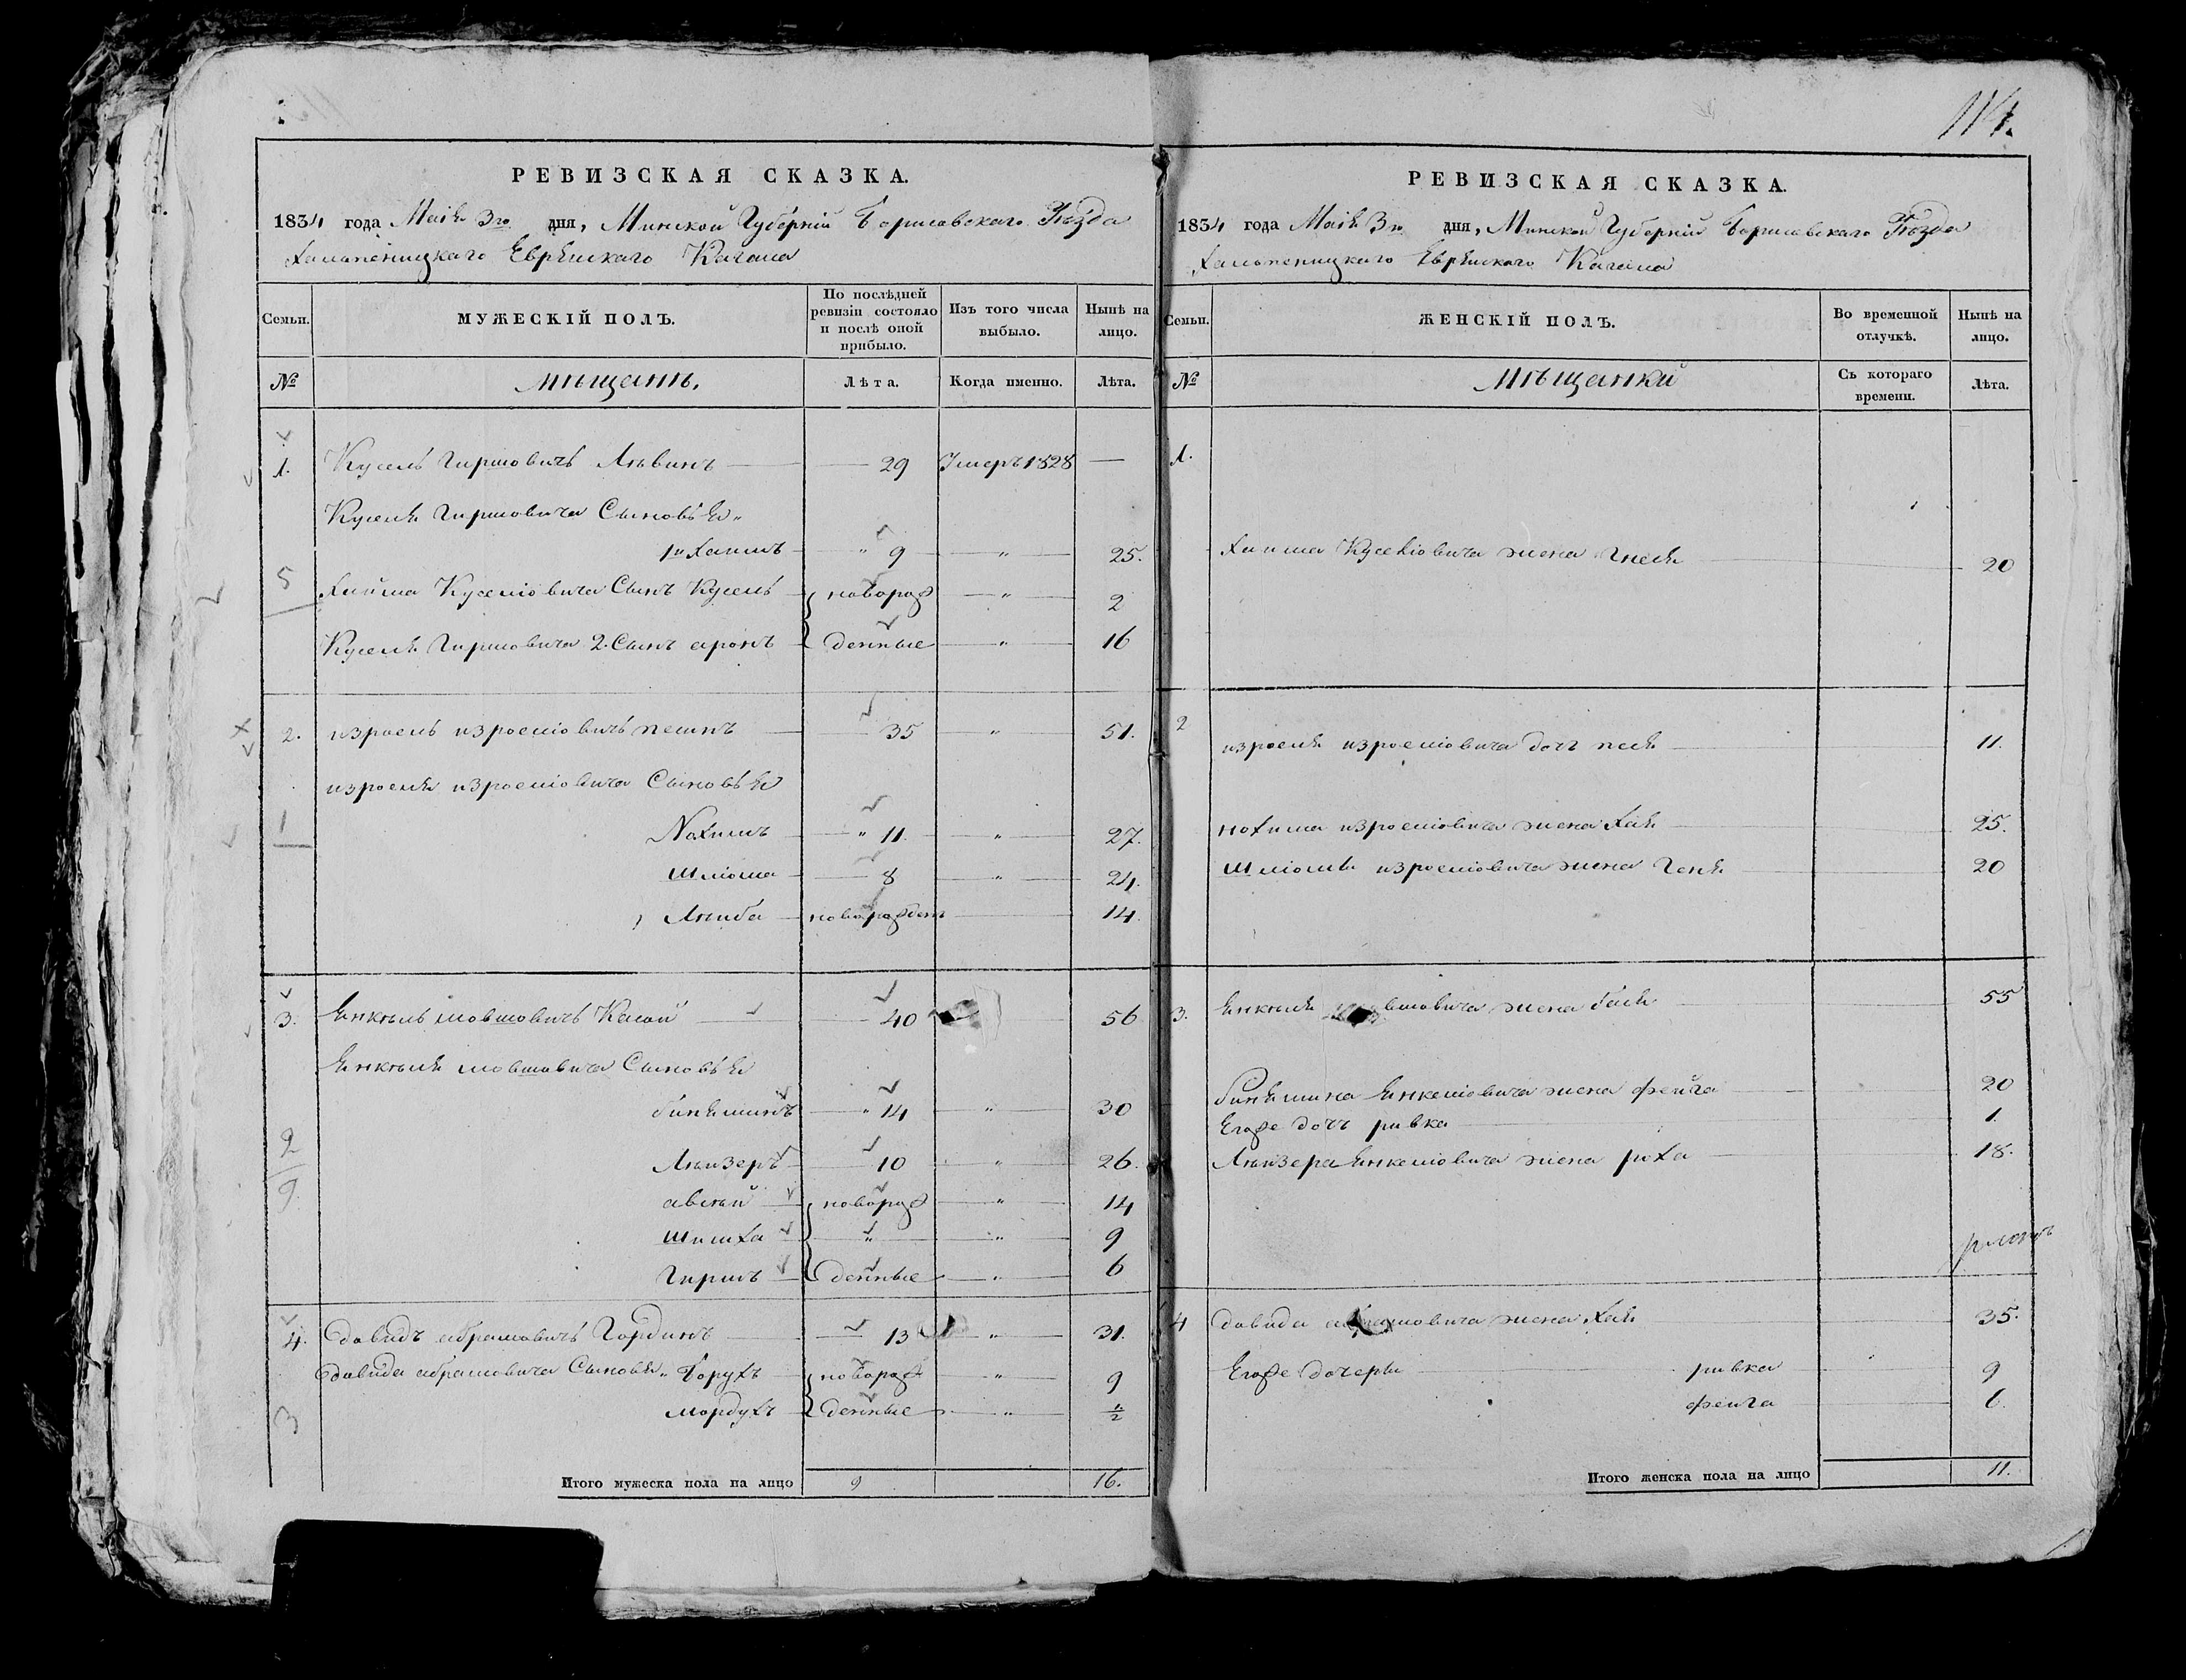 114.
РЕВИЗСКАЯ СКАЗКА.
1834 года Маія 3го дня, Минской Губерніи Борисовскаго Уѣзда
Халопеницкаго Еврейскаго Кагала
Семьи. МУЖЕСКІЙ ПОЛЪ. По послѣдней ревизіи состояло и послѣ оной прибыло. Изъ того числа выбыло. Нынѣ на лицо.
№ мѣщанъ. Лѣта. Когда именно. Лѣта.
1. Кусель Гиршовичъ Лѣвинъ 29 Умеръ 1828 —
Куселя Гиршовича Сыновья
1й Хаимъ " 9 " 25.
5 Хаима Куселіовича Сынъ Кусель новорож " 2
Куселя Гиршовича 2. Сынъ аронъ денные " 16
2. израель израеліовичъ 35 " 51.
израеля израеліовича Сыновья
Nохимъ " 11. " 27.
1 Шліома 8 " 24.
Лейба новорожден 14.
3. Янкель мовшовичъ 40 56
Янкеля мовшовича Сыновья
биняминъ " 14 " 30
2 Лейзеръ 10 " 26.
9 авсѣй новорож " 14
Шимха " " 9
Гиршъ денные " 6
4. давидъ абрамовичъ Гординъ 13 " 31.
давида абрамовича Сыновья Борухъ новорож " 9
3 мордухъ денные " "/2
Итого мужеска пола на лицо 9 16.
РЕВИЗСКАЯ СКАЗКА.
1834 года Маія 3го дня, Минской Губерніи Борисовскаго Уѣзда
Халопеницкаго Еврейскаго Кагала
Семьи. ЖЕНСКІЙ ПОЛЪ. Во временной отлучкѣ. Нынѣ на лицо.
№ мѣщанки Съ котораго времени. Лѣта.
1.
Хаима Куселіовича жена Гнеся 20
2 израеля израеліовича дочь песя 11.
нохима израеліовича жена Хая 25.
шліомы израеліовича жена Геня 20
3. Янкеля вшовича жена бася 55
бинямина Янкеліовича жена фейга 20
Егоже дочь ривка 1.
Лейзера Янкеліовича жена роха 18.
4 давида абрамовича жена Хая 35.
Егоже дочеры ривка 9
фейга 6.
Итого женска пола на лицо 11.